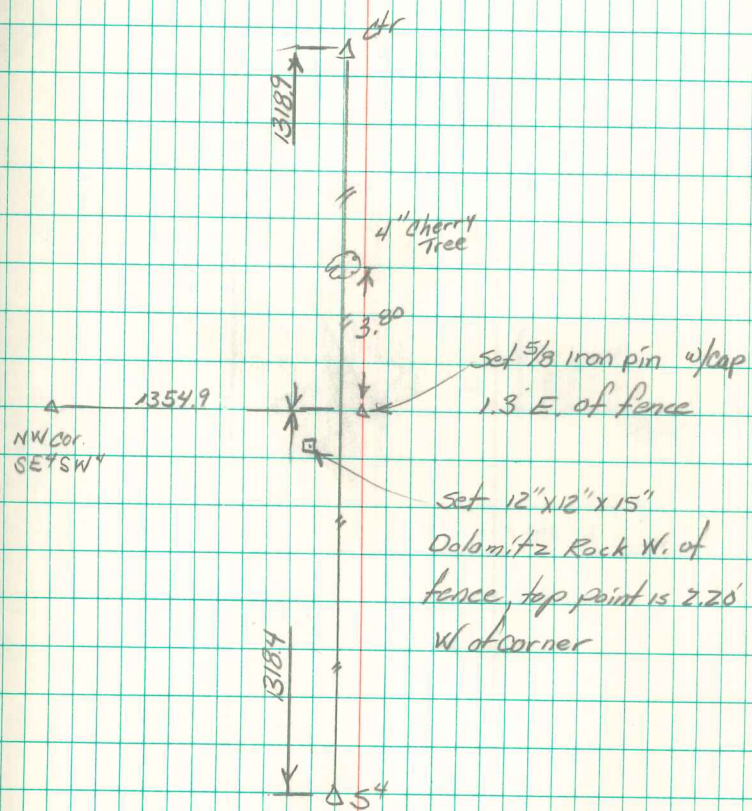 Ctr
1318.9
4" Cherry
Tree
3.80
Set 5/8 iron pin w/cap
1.3' E. of fence
1354.9
NW Cor.
SE4SW4
Set 12"x12"x15"
Dolamitz Rock W. of
fence, top point is 2.20'
W of corner
1318.4
S4